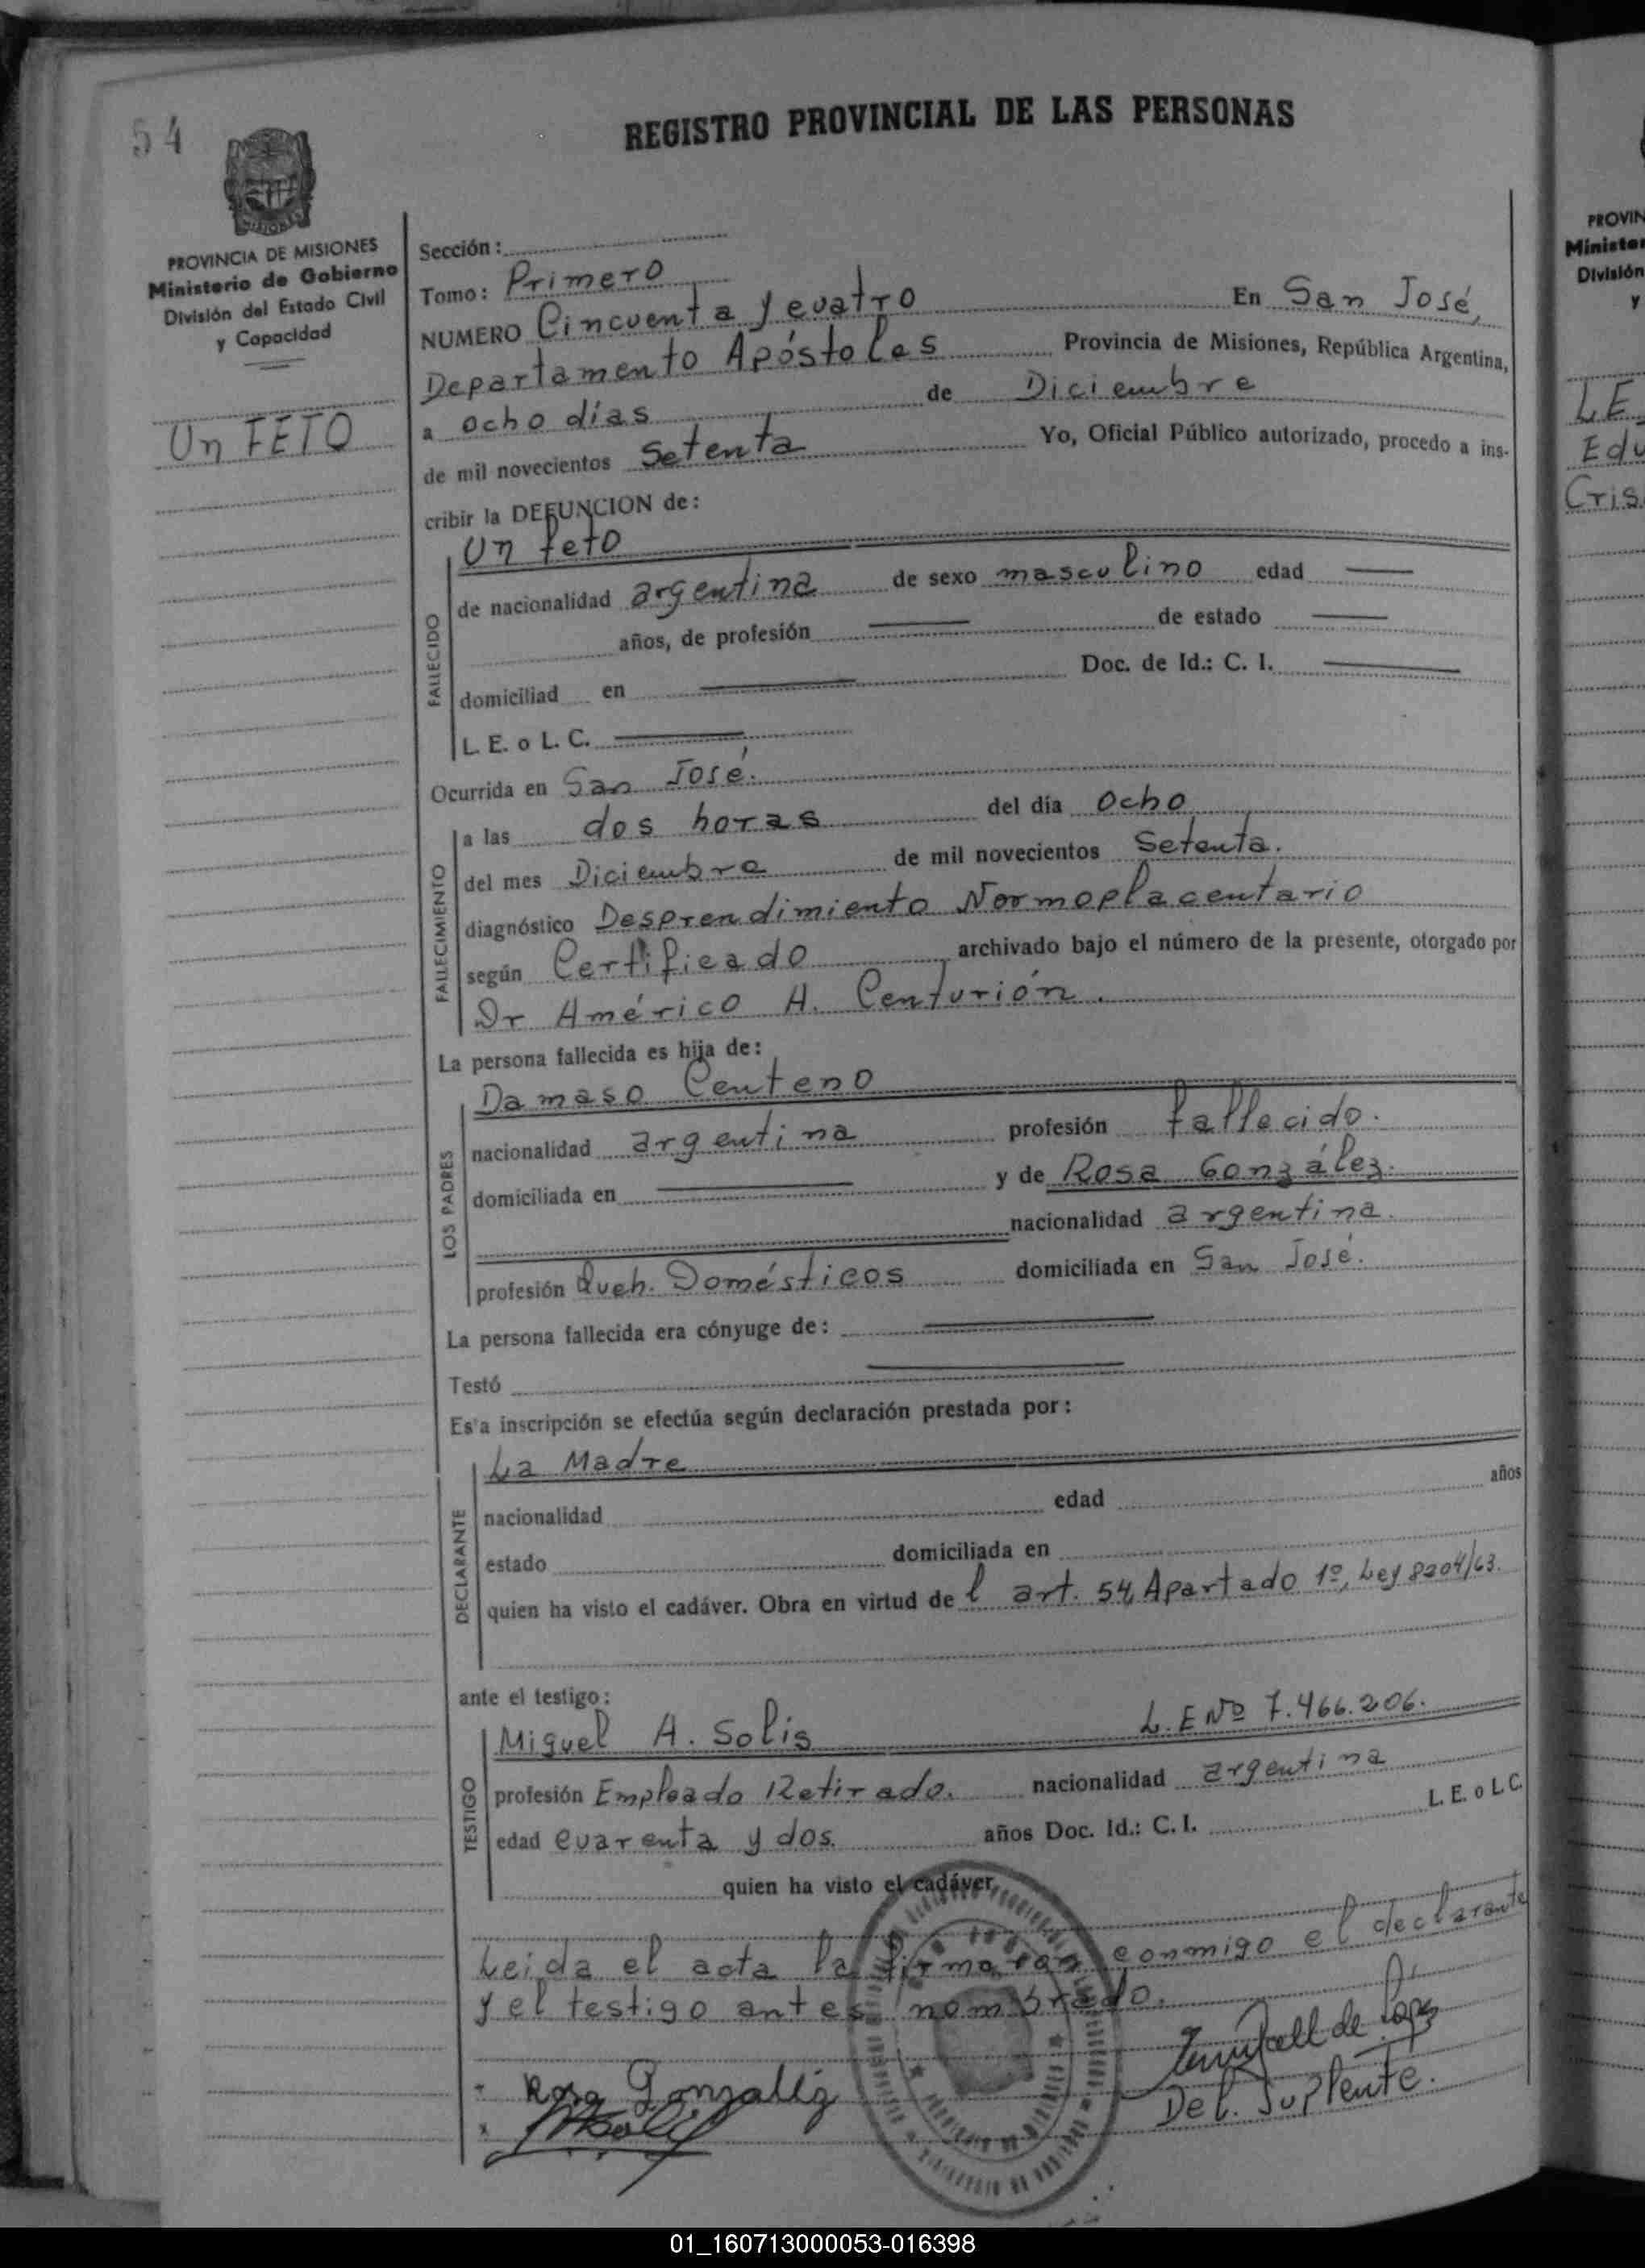 54
REGISTRO PROVINCIAL DE LAS PERSONAS
MISIONES
PROVINCIA DE MISIONES
Ministerio de Gobierno
División del Estado Civil
y Capacidad
Un FETO
Sección:
Tomo: Primero
NUMERO Cincuenta y cuatro En San José,
Departamento Apóstoles Provincia de Misiones, República Argentina,
a ocho días de Diciembre
de mil novecientos Setenta Yo, Oficial Público autorizado, procedo a ins-
cribir la DEFUNCION de:
FALLECIDO
Un feto
de nacionalidad argentina de sexo masculino edad
años, de profesión de estado
domiciliad en Doc. de Id.: C. I.
L. E. o L. C.
Ocurrida en San José.
FALLECIMIENTO
a las dos horas del día ocho
del mes Diciembre de mil novecientos Setenta.
diagnóstico Desprendimiento Normoplacentario
según Certificado archivado bajo el número de la presente, otorgado por
Dr Américo A. Centurión.
La persona fallecida es hija de:
LOS PADRES
Damaso Centeno
nacionalidad argentina profesión fallecido.
domiciliada en y de Rosa González.
nacionalidad argentina.
profesión Queh. Domésticos domiciliada en San José.
La persona fallecida era cónyuge de:
Testó
Es'a inscripción se efectúa según declaración prestada por:
DECLARANTE
La Madre
nacionalidad edad años
estado domiciliada en
quien ha visto el cadáver. Obra en virtud de l art. 54, Apartado 1º, Ley 8204/63.
ante el testigo:
TESTIGO
Miguel A. Solis L. E Nº 7.466.206.
profesión Empleado Retirado. nacionalidad argentina
edad cuarenta y dos. años Doc. Id.: C. I. L. E. o L C.
quien ha visto el cadáver.
Leida el acta la firmaran conmigo el declarante
y el testigo antes nombrado.
Rosa Gonzallez
de
Del. Suplente.
PROVIN
Minister
División
y
LE
Edu
Cris
01_160713000053-016398